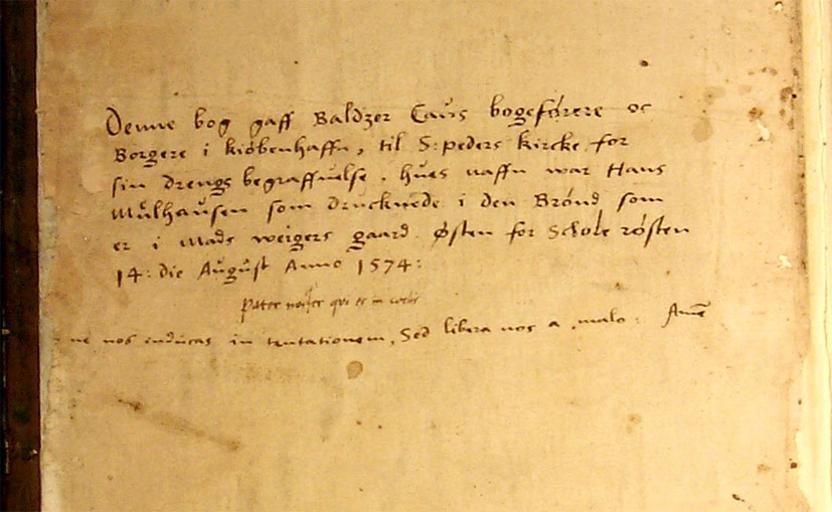 Denne bog gaff Baldzer Caus bogeførere oc
Borgere i kiøbenhaffn, til S: peders kircke for
sin drengs begraffuelse, hues naffn war Hans
Mülhausen som drucknede i den Brønd som
er i Mads weigers gaard østen for Schole røsten
14: die August Anno 1574:
Pater noster qui es in coelis
ne nos inducas in tentationem, Sed libera nos a malo: Amē